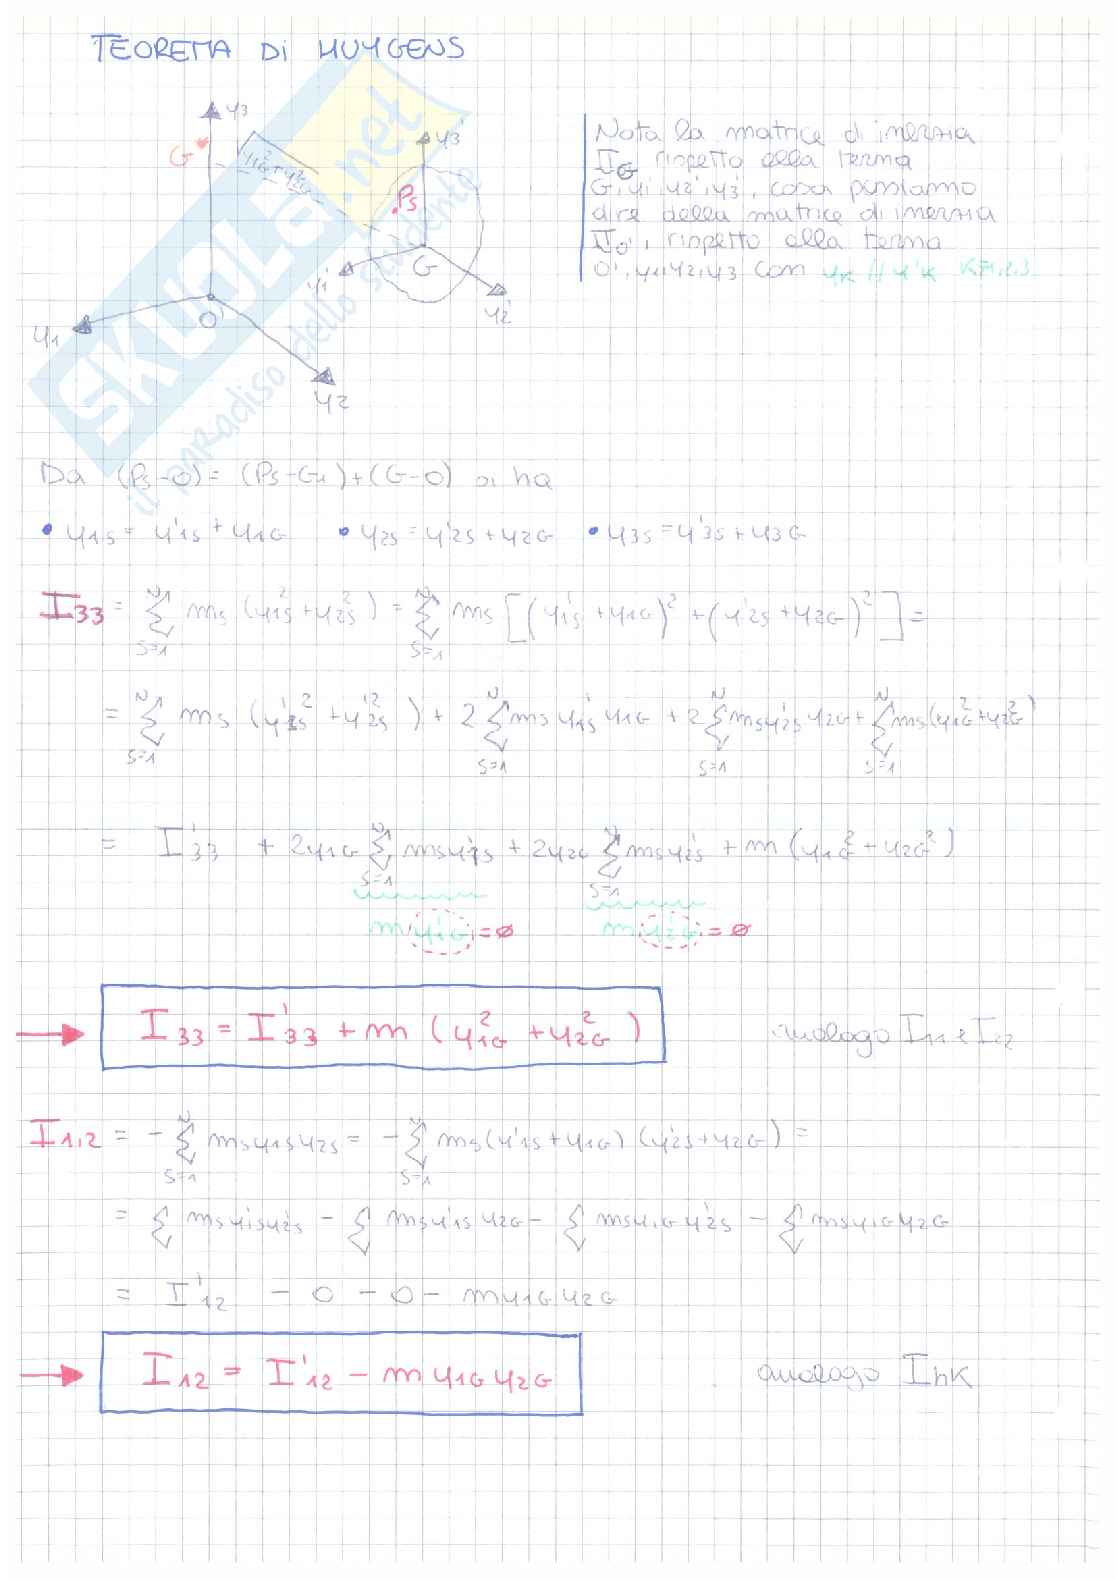 TEOREMA DI HUYGENS
y3
G*
√y1G²+y2G²
y3'
Ps
y1'
G
y2'
O'
y1
y2
Nota la matrice di inerzia
IG rispetto alla terna
G,y1',y2',y3', cosa possiamo
dire della matrice di inerzia
IO', rispetto alla terna
O',y1,y2,y3 con yk // y'k K=1,2,3.
SKUOLA.net
il paradiso dello studente
Da (Ps-O) = (Ps-G) + (G-O) si ha
• y1s = y'1s + y1G • y2s = y'2s + y2G • y3s = y'3s + y3G
I33 = Σ(s=1,N) ms (y1s² + y2s²) = Σ(s=1,N) ms [(y'1s + y1G)² + (y'2s + y2G)²] =
= Σ(s=1,N) ms (y'1s² + y'2s²) + 2 Σ(s=1,N) ms y'1s y1G + 2 Σ(s=1,N) ms y'2s y2G + Σ(s=1,N) ms (y1G² + y2G²)
= I'33 + 2y1G Σ(s=1,N) ms y'1s + 2y2G Σ(s=1,N) ms y'2s + m (y1G² + y2G²)
m y'1G = ∅ m y'2G = ∅
→ I33 = I'33 + m (y1G² + y2G²) analogo I11 e I22
I1,2 = - Σ(s=1,N) ms y1s y2s = - Σ(s=1,N) ms (y'1s + y1G) (y'2s + y2G) =
= Σ ms y'1s y'2s - Σ ms y'1s y2G - Σ ms y1G y'2s - Σ ms y1G y2G
= I'12 - 0 - 0 - m y1G y2G
→ I12 = I'12 - m y1G y2G analogo IhK